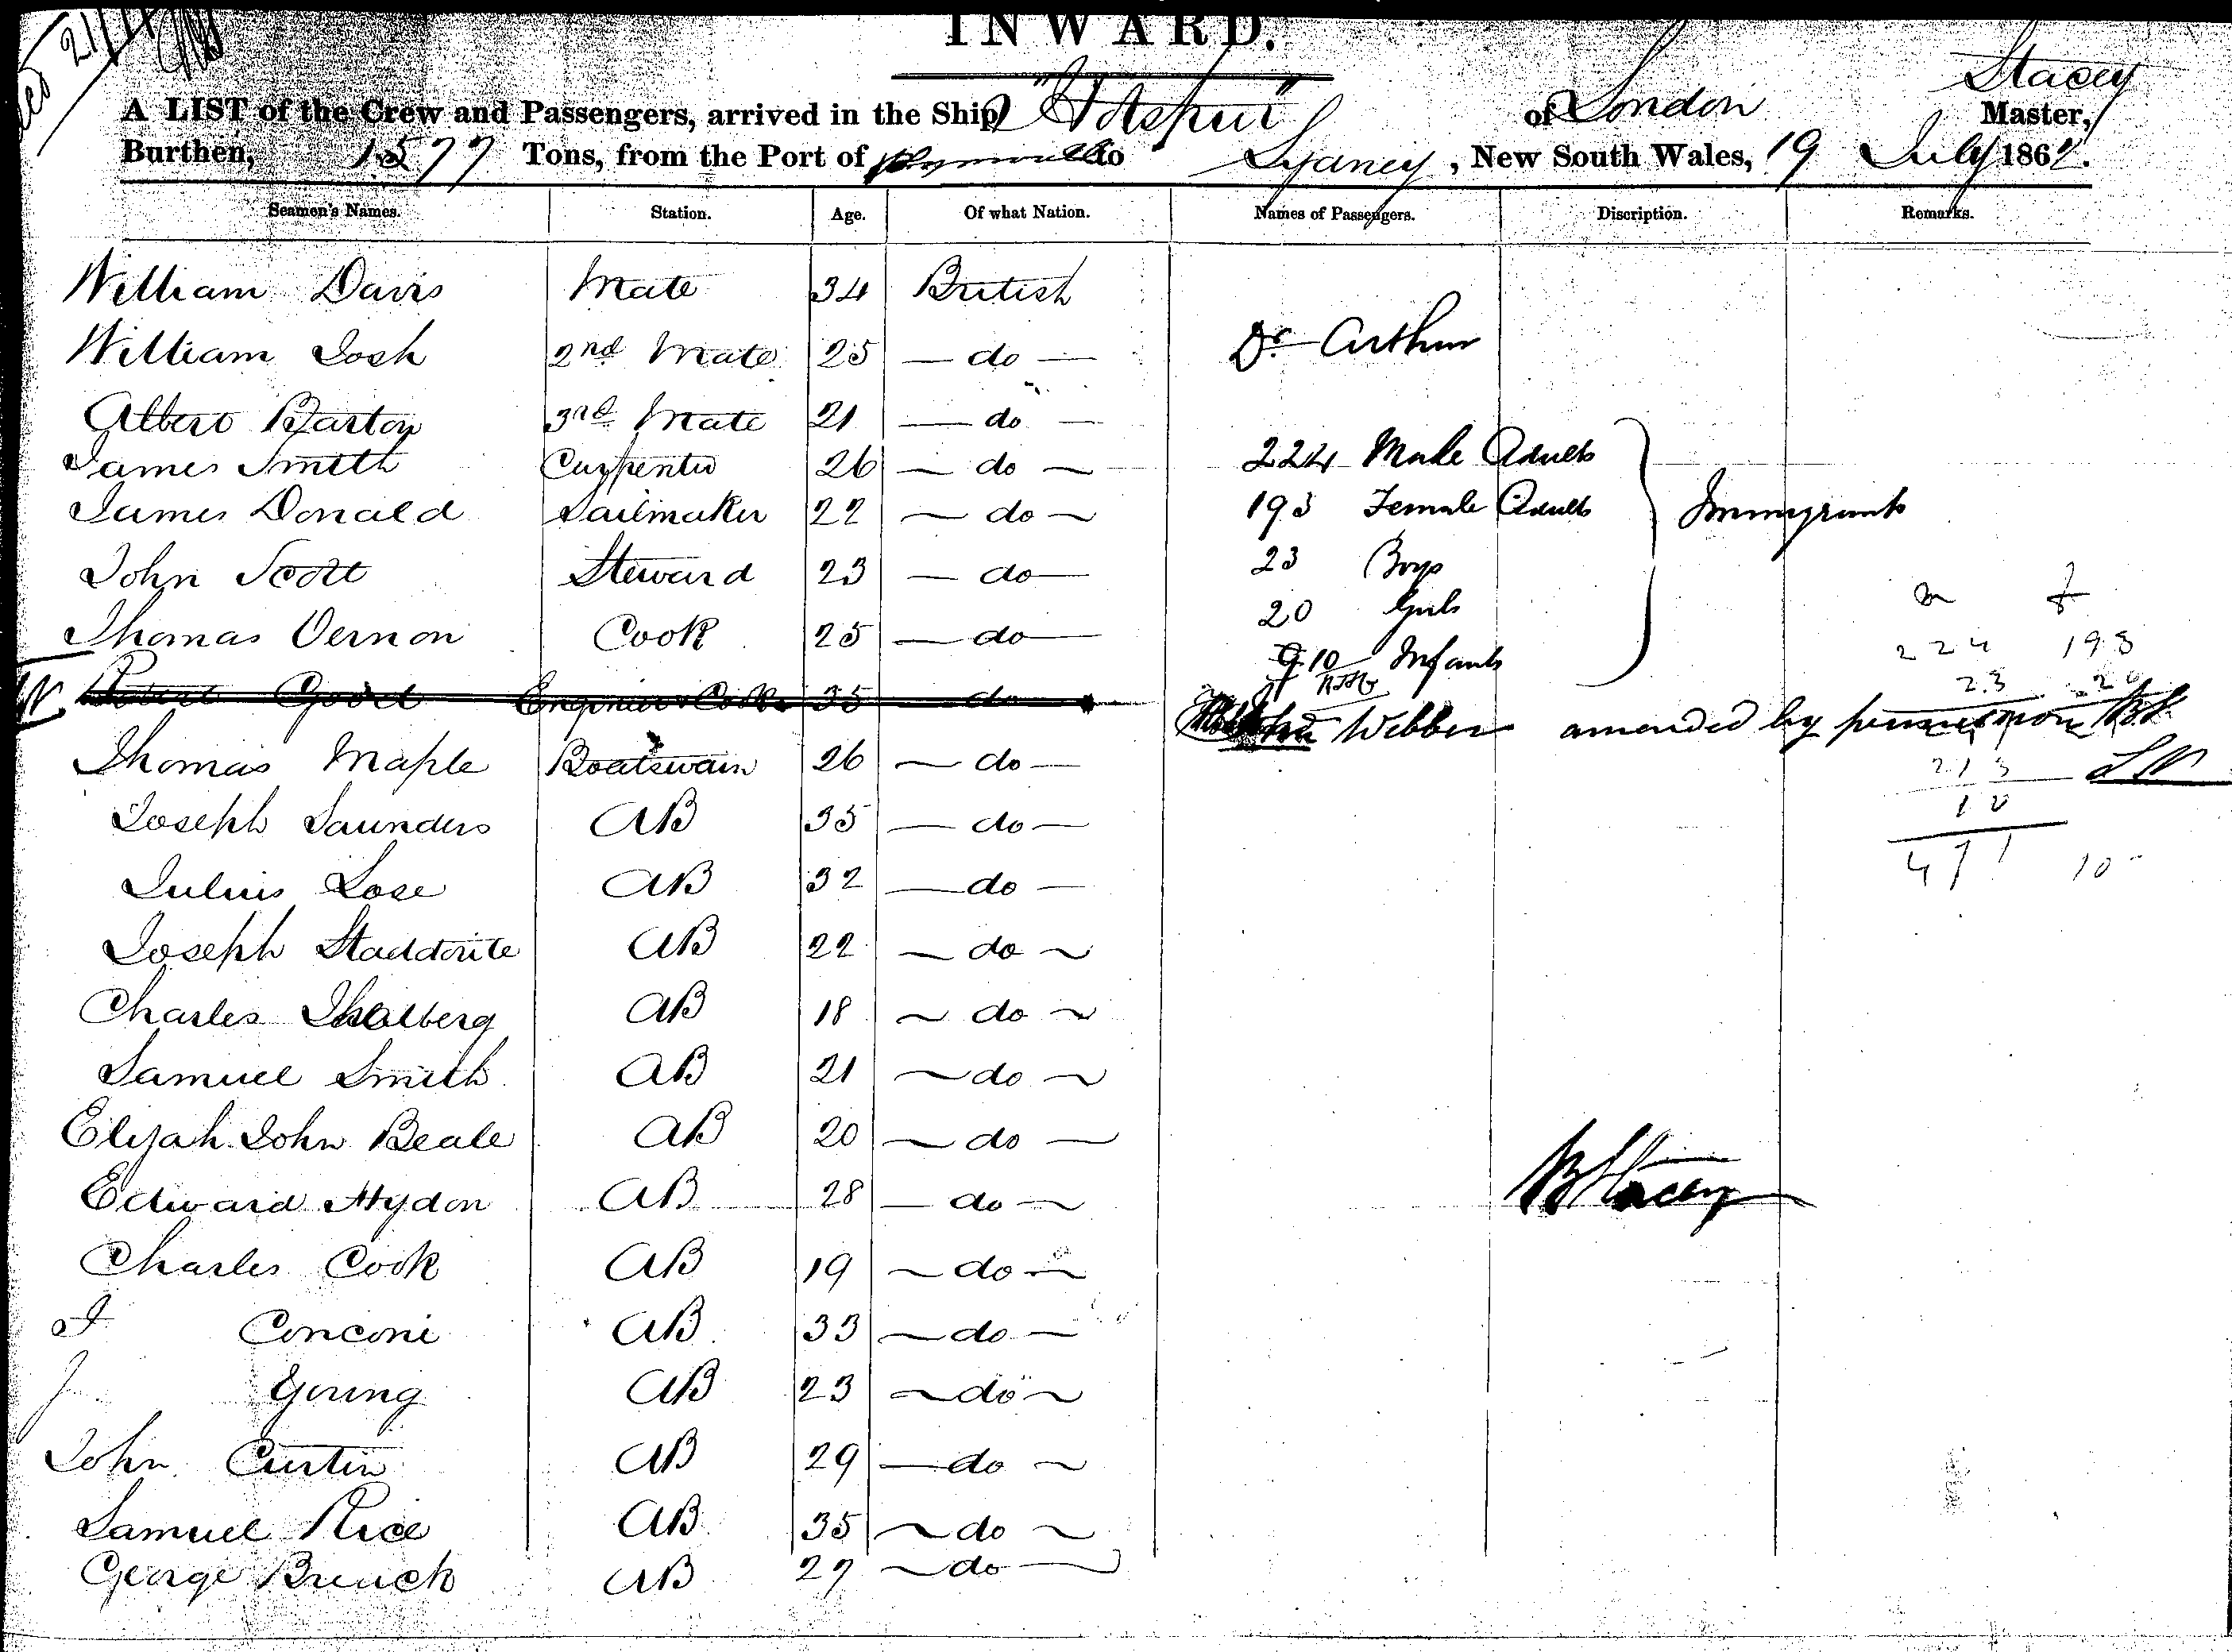 INWARD.
Stacey
A LIST of the Crew and Passengers, arrived in the Ship "Hotspur" of London Master,
Burthen, 1577 Tons, from the Port of Plymouth to Sydney, New South Wales, 19 July 1862.
Seamen's Names. Station. Age. Of what Nation. Names of Passengers. Discription. Remarks.
William Davis Mate 34 British
William Josh 2nd Mate 25 — do — Dr Arthur
Albert Barton 3rd Mate 21 — do —
James Smith Carpenter 26 — do — 224 Male Adults
James Donald Sailmaker 22 — do — 193 Female Adults Immigrants
John Scott Steward 23 — do — 23 Boys
20 Girls m f
Thomas Vernon Cook 25 — do — 224 193
9 10 Infants
23 20
Good Engineer & Cook 35 — do —
Webber amended by permission
Thomas Maple Boatswain 26 — do —
213
Joseph Saunders AB 35 — do —
10
Julius Lose AB 32 — do — 471 10
Joseph Staddorite AB 22 — do —
Charles Thalberg AB 18 — do —
Samuel Smith AB 21 — do —
Elijah John Beale AB 20 — do —
Edward Hydon AB 28 — do — Stacey
Charles Cook AB 19 — do —
Conconi AB 33 — do —
J Young AB 23 — do —
John Curtin AB 29 — do —
Samuel Rice AB 35 — do —
George AB 27 — do —